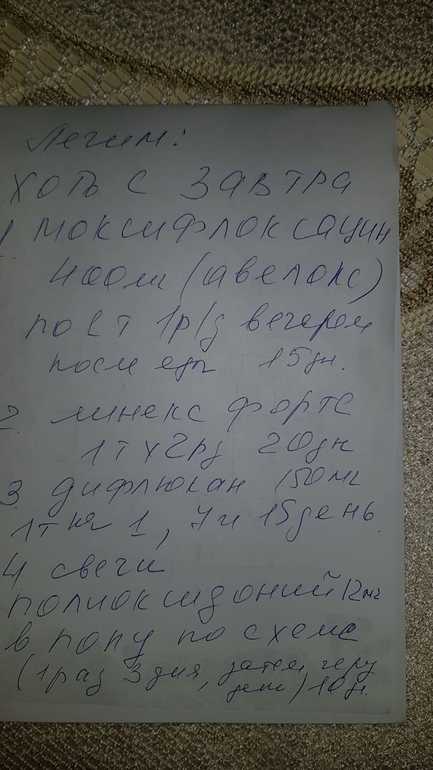 Лечим:
хоть с завтра
1 моксифлоксацин
400мг (авелокс)
по 1т 1р/д вечером
после еды 15дн.
2 линекс форте
1т х 2рд 20дн
3. дифлюкан 150мг
1т на 1, 7 и 15 день
4 свечи
полиоксидоний 12мг
в попу по схеме
(1раз 3дня, затем через
день) 10д.